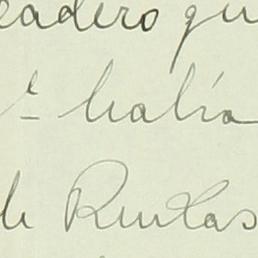 eadero qu
había
de Rentas